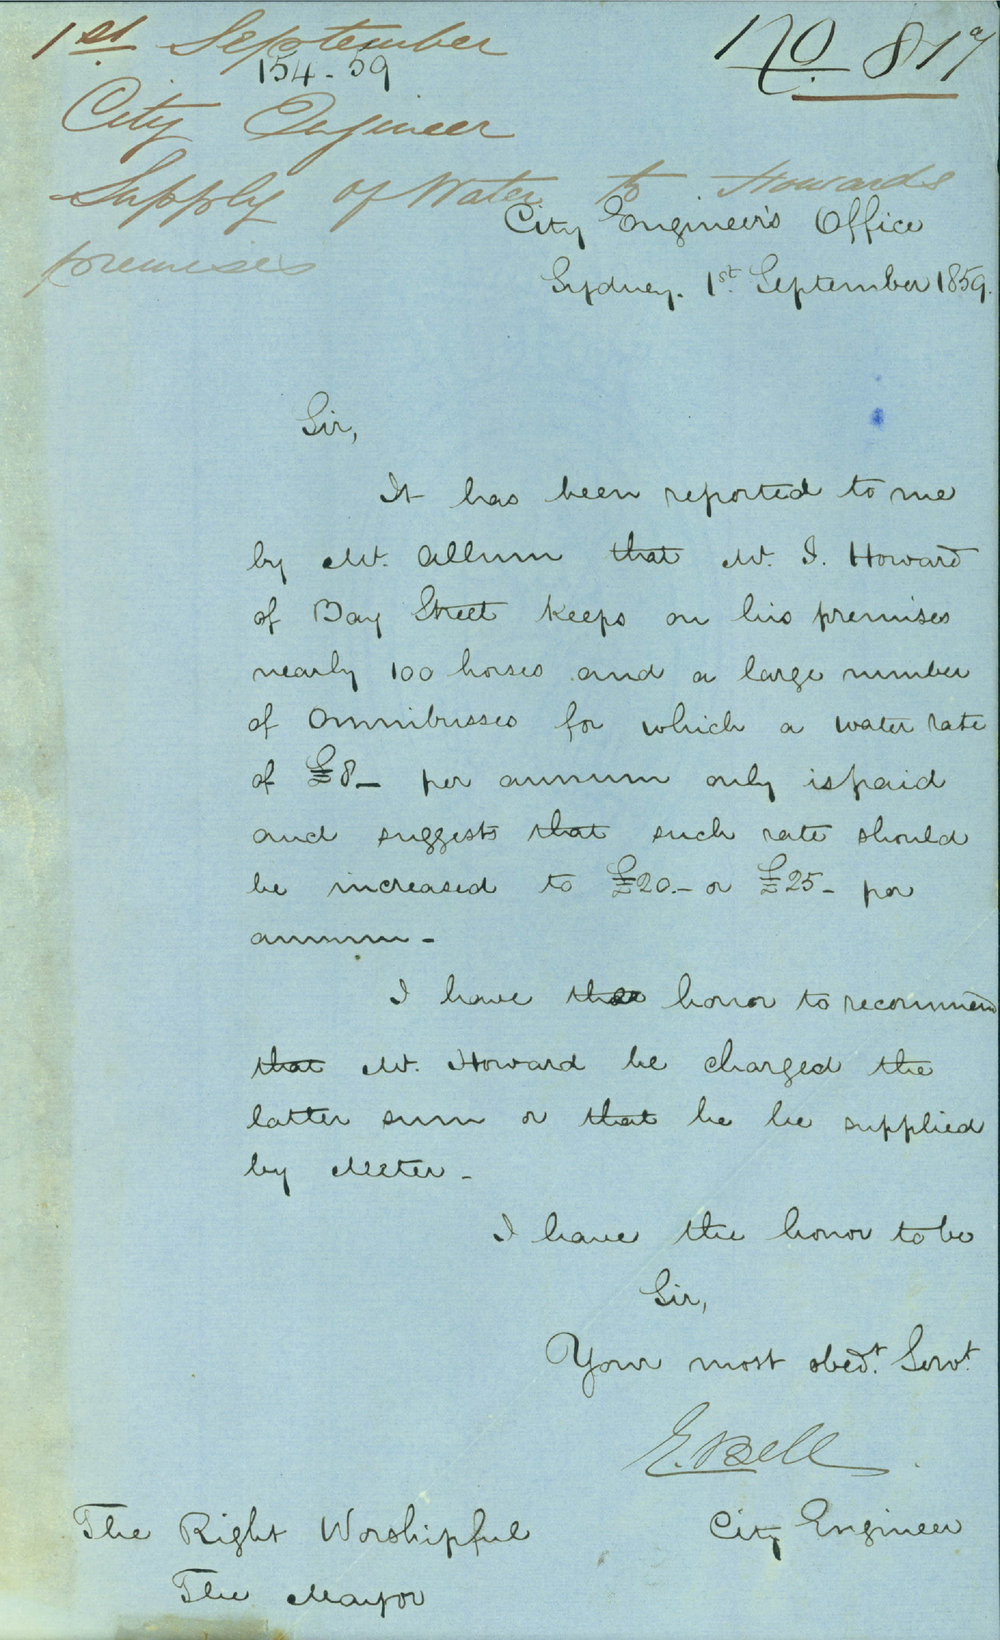 1st September
154-59
No 817
City Engineer
Supply of Water to Howards
premises
City Engineer's Office
Sydney. 1st September 1859.
Sir,
It has been reported to me
by Mr. Allum that Mr. I. Howard
of Bay Street keeps on his premises
nearly 100 horses and a large number
of Omnibusses for which a water rate
of £8_ per annum only is paid
and suggests that such rate should
be increased to £20.- or £25- per
annum -
I have the honor to recommend
that Mr. Howard be charged the
latter sum or that he be supplied
by Meter -
I have the honor to be
Sir,
Your most obedt. Servt.
E. Bell
City Engineer
The Right Worshipful
The Mayor